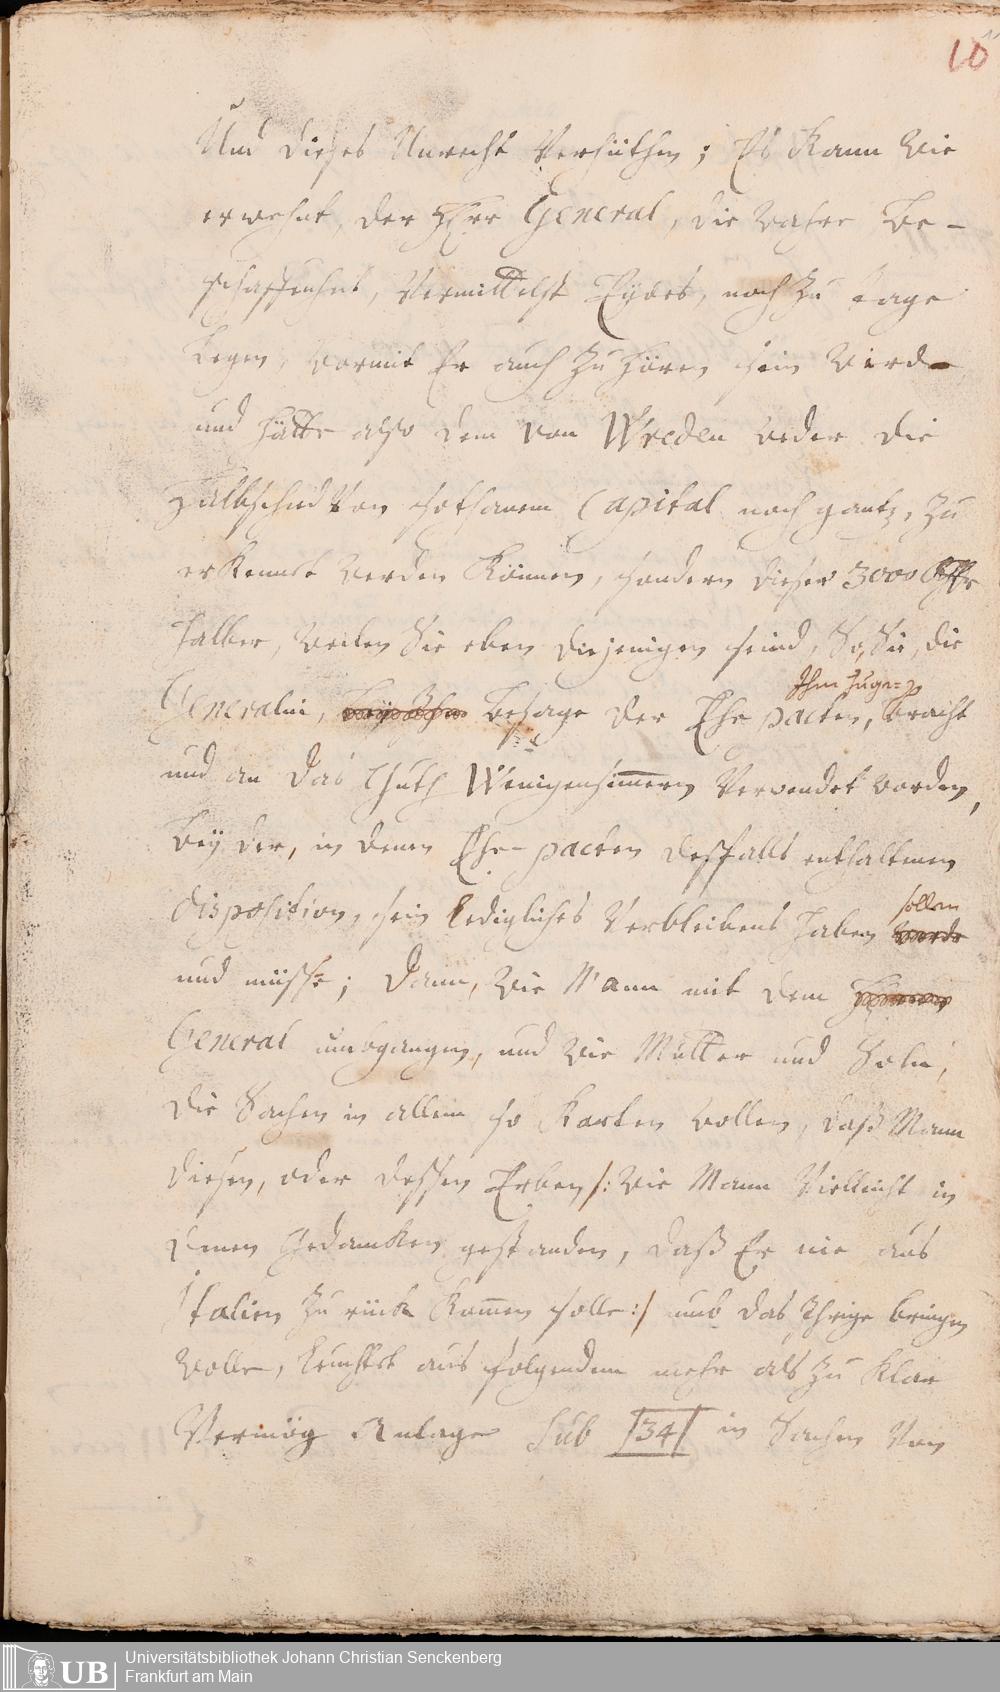 10
Und dieses Unrecht Verhüthen; Es Kann Wie
erwehnt, der Herr General, die wahre Be-
schaffenheit, Vermittelst Eydes, noch zu tage
Legen, Wormit Er auch zu hören sein Wird
und hätte also dem von Wreden weder die
Halbschied von sothanem Capital noch gantz, zu
erkennt werden Können, sondern dieser 3000
halber, weilen Sie eben diejenigen seind, So Sie, die
Ihm zuge=
Generalin, Besage der Ehe pacten, bracht
und an das Guth Wenigensömmern Verwendet worden,
bey der, in denen Ehe-pacten desfalls enthaltenen
disposition, sein Ledigliches Verbleibens haben sollen
und müsse; Dann, Wie Mann mit dem
General umbgangen, und Wie Mutter und Sohn,
die Sachen in allem so Karten wollen, daß Mann
diesen, oder dessen Erben /: Wie Mann Vielleicht in
denen Gedancken gestanden, daß Er nie aus
Italien zurück Kommen solle :/ umb das Ihrige bringen
Wolle, leuchtet aus folgendem mehr als zu klar
Vermög Anlage sub /34/ in Sachen Von
UB
Universitätsbibliothek Johann Christian Senckenberg
Frankfurt am Main